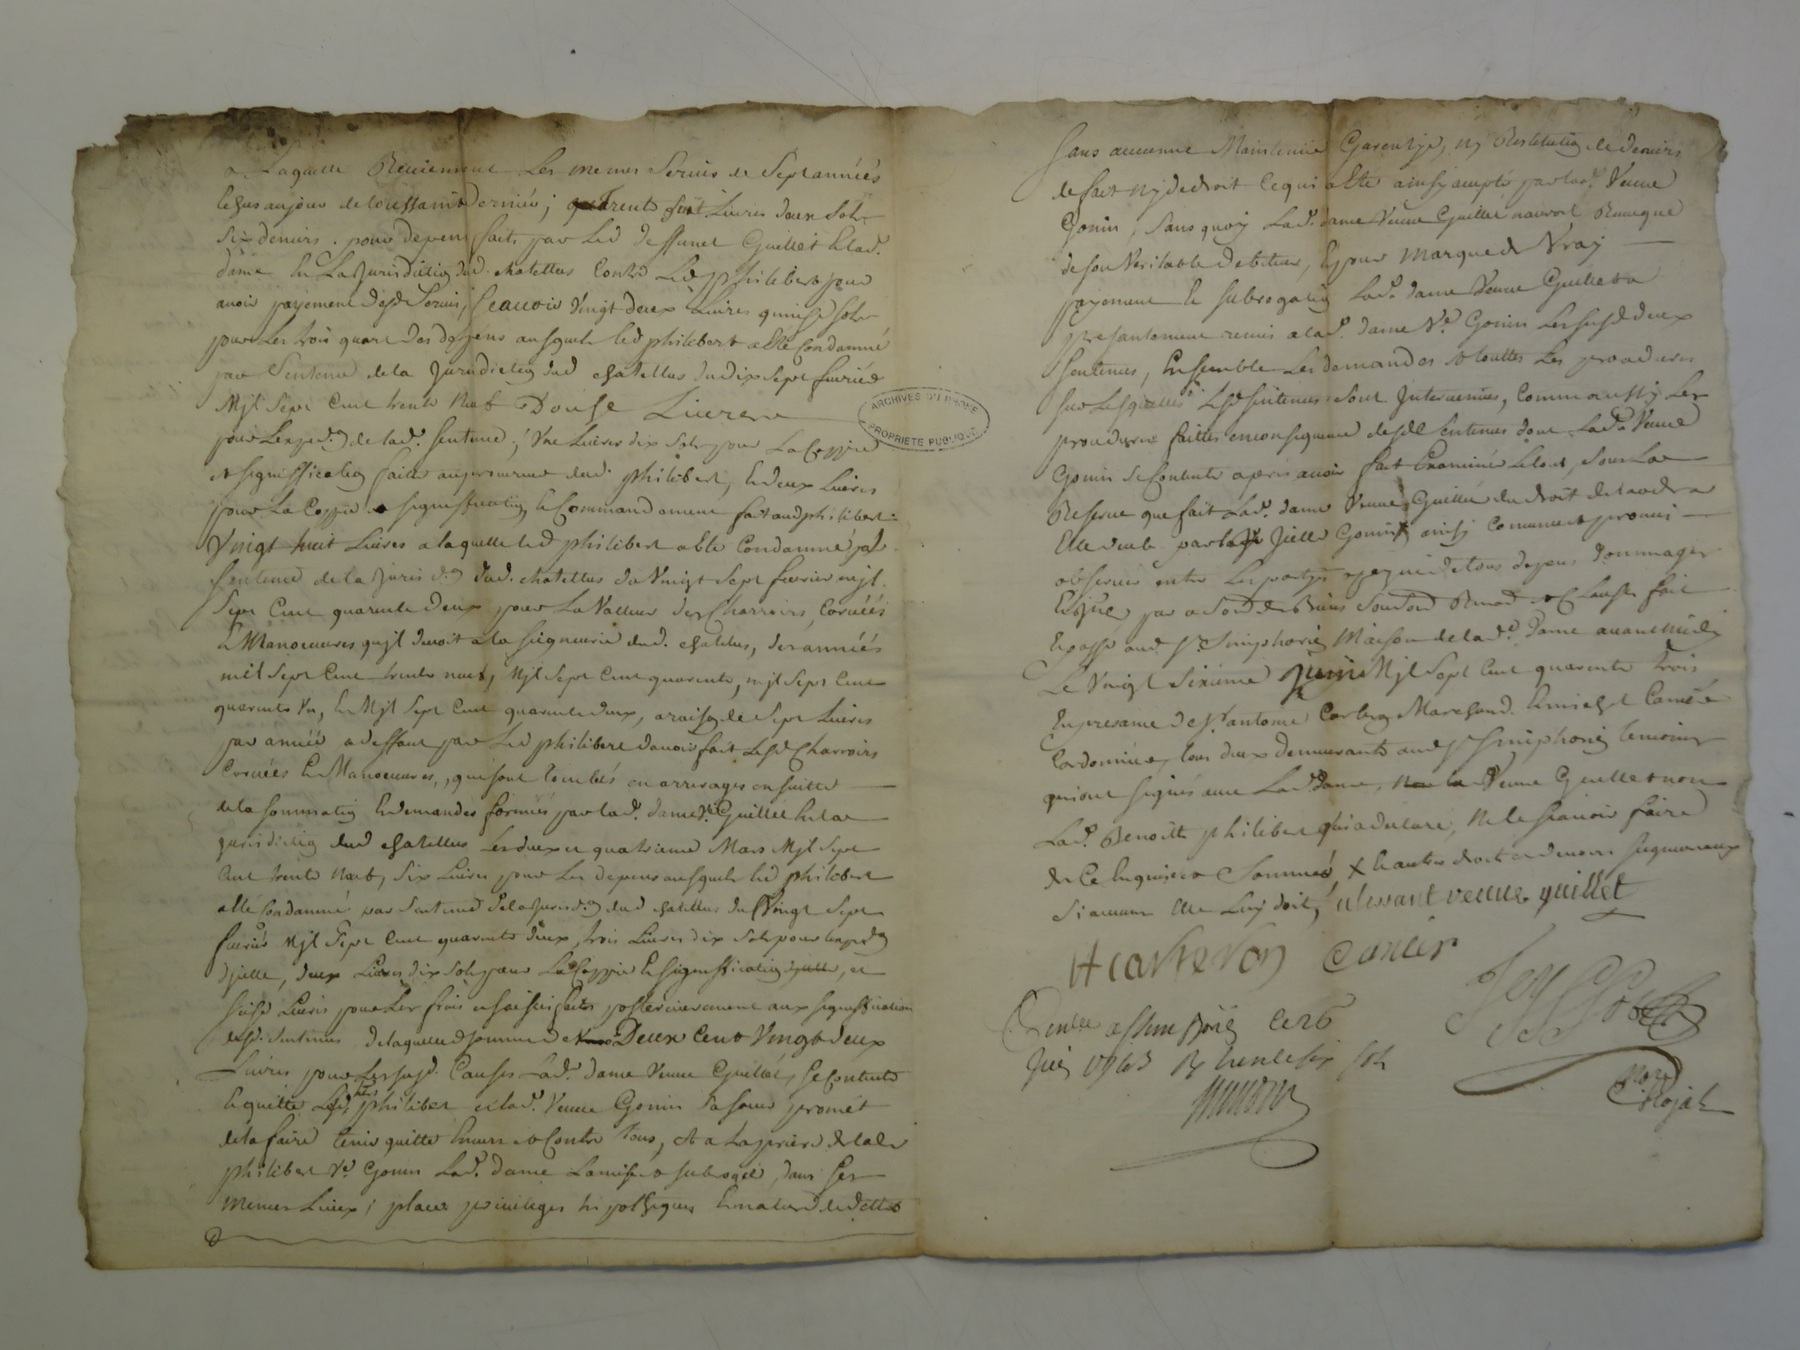 a Laquelle Reviennent Les memes Servis de Sept années
Echus au jour de toussaint dernier; trente sept Livres deux Sols
Six deniers. pour depens faits par Led deffunct Guillet & lad.
dame en La Jurisdiction dud. chatellus Contre Led philibert pour
avoir payement desd Servis, Scavoir Vingt deux Livres quinse sols
pour Les trois quart des depens ausquels led philibert a été Condamné
par Sentence de la Jurisdiction dud chatellus du dix Sept fevrier
Mjl Sept Cent trente Neuf Douse Livres
pour L'exped.on de lad. Sentence; Une Livre dix Sols pour La Coppie
et signiffication faite au procureur dud. philibert, & deux Livres
pour La Coppie signiffication & Commandement fait aud philibert
Vingt huit Livres a laquelle led philibert a été Condamné par
Sentence de la Juris d.on dud. chatellus du Vingt Sept fevrier mjl
Sept Cent quarente deux pour La Valleur des Charrois, Corvéés
& Manoeuvres qu'jl devoit a la Seigneurie dud. chatelus, des années
mil Sept Cent trente neuf, Mjl Sept Cent quarente, mjl Sept Cent
quarente Un, & Mjl Sept Cent quarente deux, a raison de Sept Livres
par année a deffaut par Led philibert d'avoir fait Lesd Charrois
Corvées & Manoeuvres, qui sont tombés en arrerages en suitte
de la Sommation & demandes formées par lad. dame Guillet en la
jurisdiction dud chatellus Les deux et quatrieme Mars Mjl Sept
Cent trente Neuf, Six Livres pour Les depens ausquels led philibert
a été Condamné par Sentence de la Jurisd.on dud chatellus du Vingt Sept
fevrier Mjl Sept Cent quarente deux, trois Livres dix Sols pour L'exped.on
d'jcelle, deux Livres dix Sols pour La Coppie & signiffication d'jcelle, et
Seise Livres pour Les frais et saisies faits posterieurement aux signiffications
desd. Sentences de laquelle d somme de Deux Cent Vingt deux
Livres pour Les susd. Causes Lad. dame Veuve Guillet, Se Contente
& quitte Led philibert et lad. Veuve Gonin Sa Soeur promét
de la faire tenir quitte Envers & Contre Tous, Et a La priere de lad.
philibert V.e Gonin Lad. dame La mise & subrogée, dans Ses
memes Lieux; places privileges hipotheques & nature de dettes
Sans aucune Maintenüe Garentye, ny Restitution de deniers
de fait ny de droit Ce qui a été ainsy accepté par lad. Veuve
Gonin, Sans quoy Lad. dame Veuve Guillet n'auroit
de son Veritable debiteur, & pour Marque de Vray
payement & subrogation Lad. dame Veuve Guillet a
presantement remis a lad. dame V.e Gonin Les susd deux
Sentences, Ensemble Les demandes & touttes Les procedures
sur Lesquelles Lesd Sentences sont Jntervenües, Comm'aussy Les
procedures faittes en consequence desd Sentences dont Lad. Veuve
Gonin Se Contente apres avoir fait Examiner Letout, Sous La
Reserve que fait Lad. dame Veuve Guillet du droit de
Elle deub par Jcelle Gonin X ainsy Convenu & promis
observer entre Les partyes a peyne de tous depens dommages
Et passé aud. S.t Simphorien Maison de lad. Dame avant midy
Le Vingt Sixieme Juin Mjl Sept Cent quarente trois
En presance de S.r antoine Carteron Marchand & michel Carriée
Cordonnier, tous deux demeurants aud S.t Simphorien temoins
qui ont signés avec Lad. dame, Veuve Guillet & non
Lad. Benoitte philibert qui a declaré, Ne le sçavoir faire
de Ce Enquise & Sommée X & autres droits et devoirs seigneuriaux
Si aucun Elle Luy doit, veuve guillet
H carteron
Juin 1743 R trente six sols
ARCHIVES DU RHONE
PROPRIETE PUBLIQUE
not. Royal